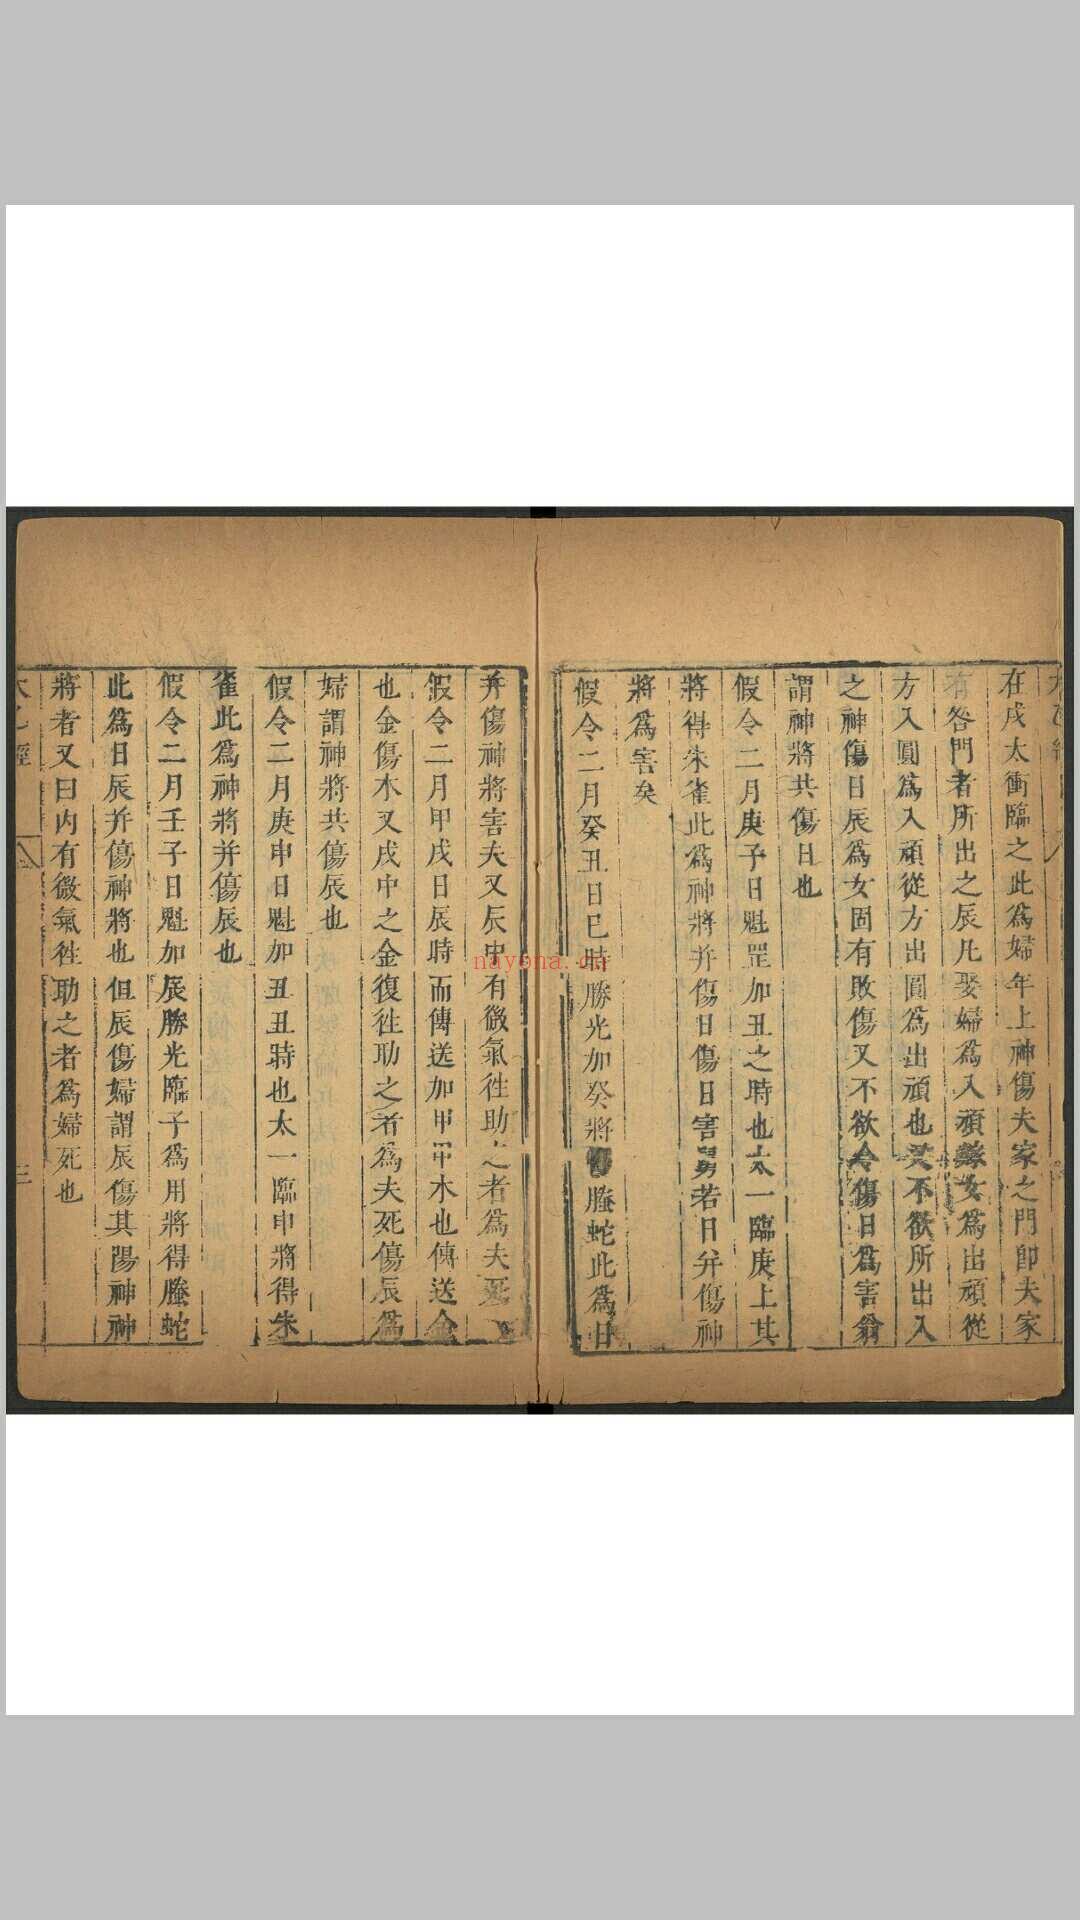 在戌太衝臨之此為婦年上神傷夫家之門即夫家
有咎門者所出之辰凡娶婦為入頑嫁女為出頑從
方入圓為入頑從方出圓為出頑也又不欲所出入
之神傷日辰為女固有敗傷又不欲令傷日為害翁
謂神將共傷日也
假令二月庚子日魁罡加丑之時也太一臨庚上其
將得朱雀此為神將并傷日傷日害舅若日并傷神
將為害矣
假令二月癸丑日巳時勝光加癸將螣蛇此為日
并傷神將害夫又辰中有微氣徃助之者為夫死
假令二月甲戌日辰時而傳送加甲甲木也傳送金
也金傷木又戌中之金復徃助之者為夫死傷辰為
婦謂神將共傷辰也
假令二月庚申日魁加丑丑時也太一臨申將得朱
雀此為神將并傷辰也
假令二月壬子日魁加辰勝光臨子為用將得螣蛇
此為日辰并傷神將也但辰傷婦謂辰傷其陽神神
將者又曰內有微氣徃助之者為婦死也
經
三
nayona.cn